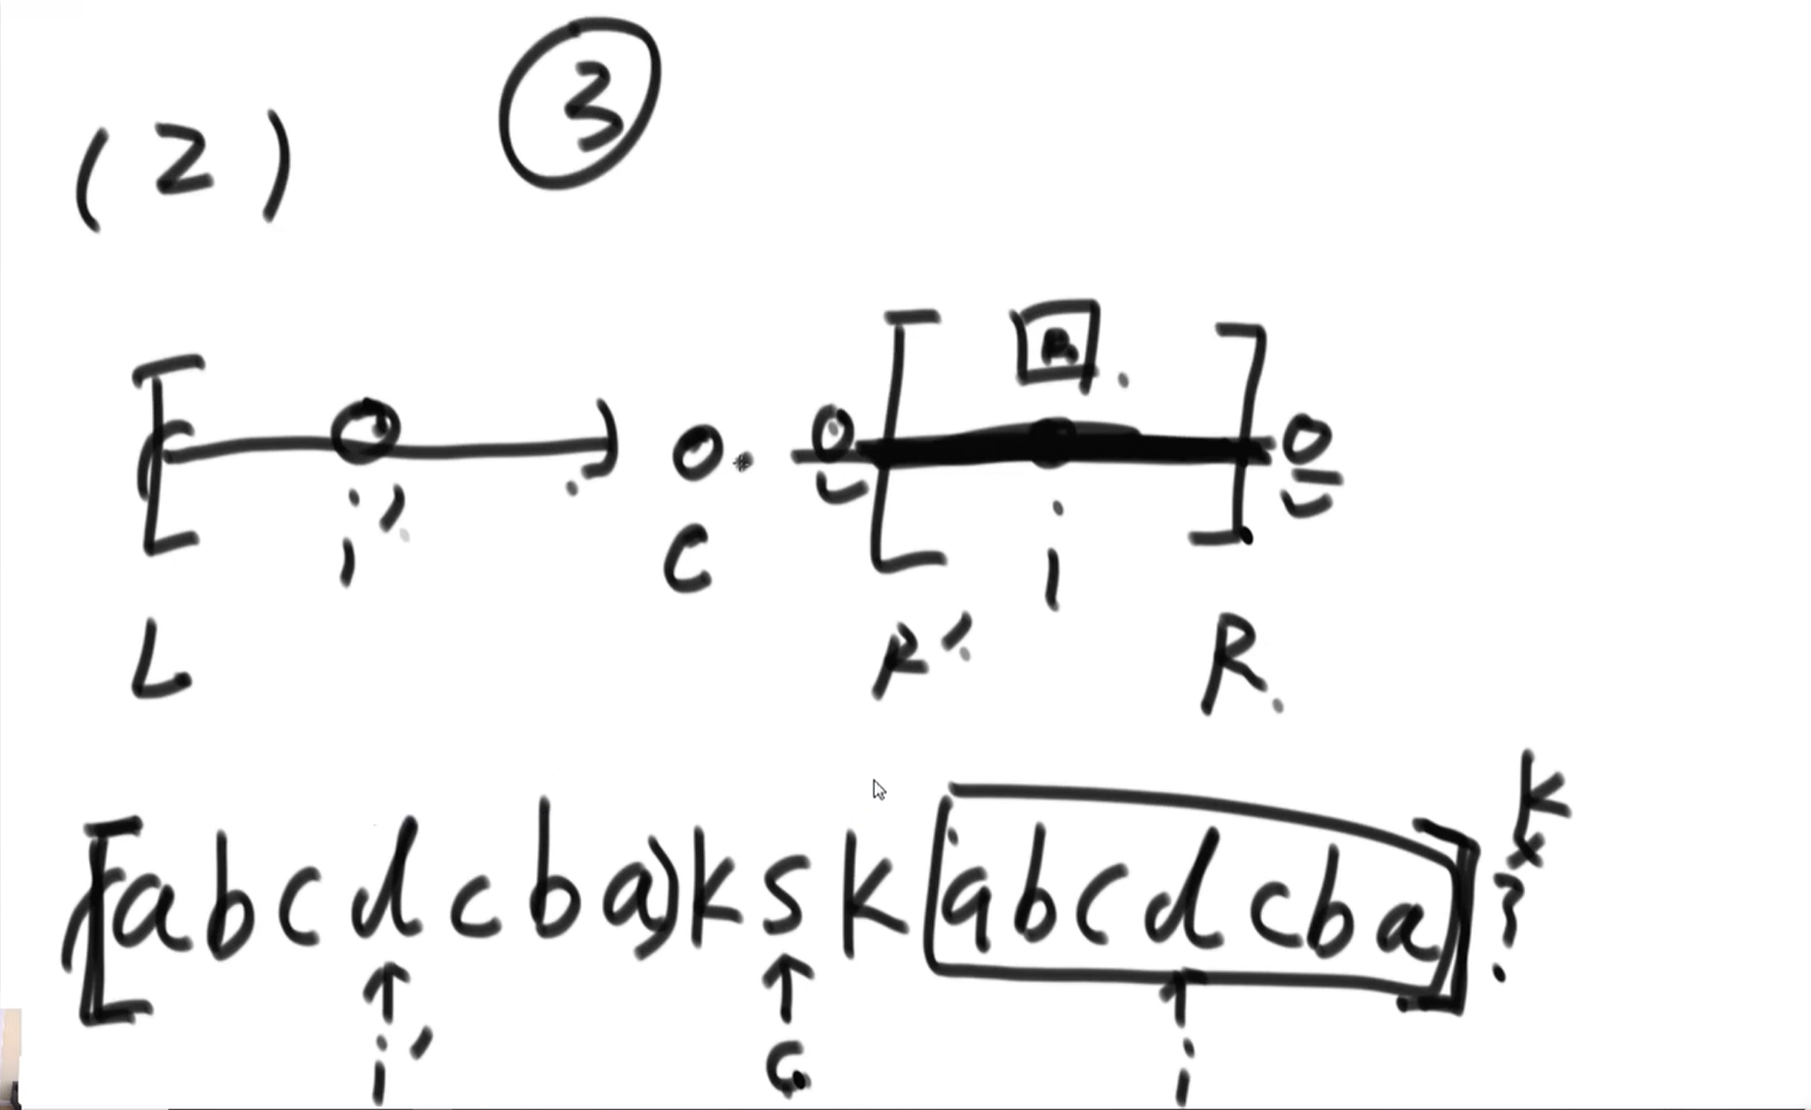 (2) ③
[ ( i' ) C [ i ] 
L R' R.
[(abcdcba)ksk[abcdcba] k
?
i' c i